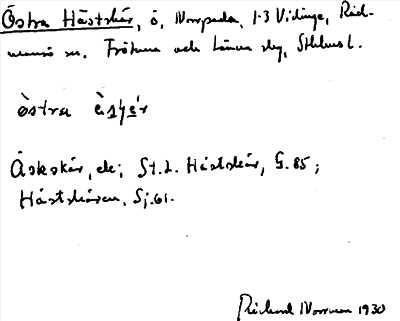 Östra Hästskär, ö, Norrpada, 1:3 Vidinge, Räd-
mansö sn. Frötuna och Länna slg, Sthlms l.
östra
Äskskär, ek; St. L. Hästskär, G. 85;
Hästskären, Sj. 61.
Rickard Norrman 1930